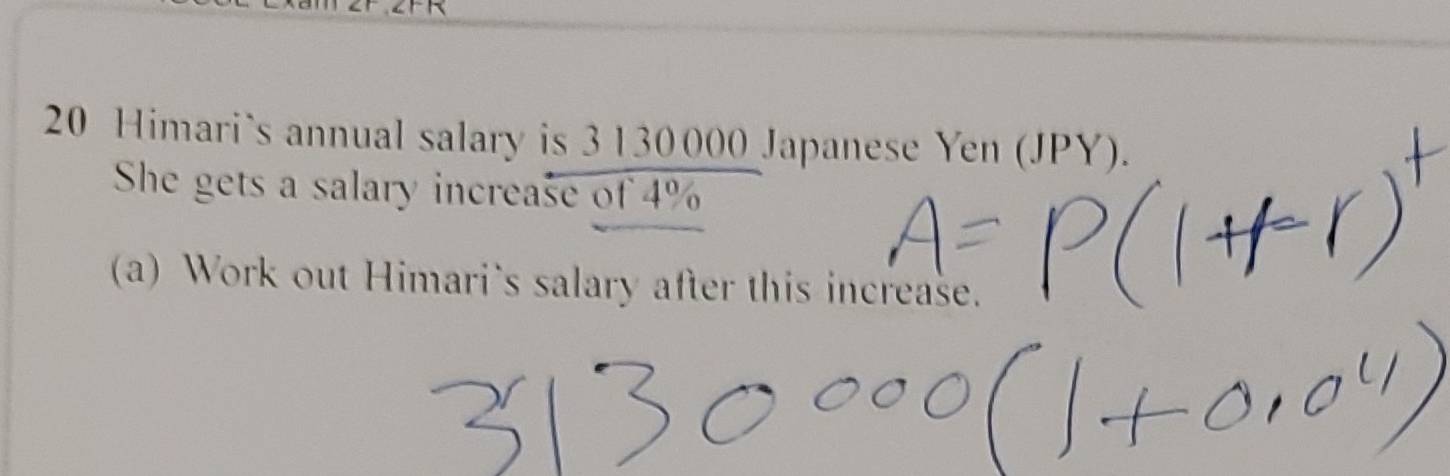 2F,2FR
20 Himari's annual salary is 3 130 000 Japanese Yen (JPY).
She gets a salary increase of 4%
A = P(1+r)^t
(a) Work out Himari's salary after this increase.
3130000(1+0,04)